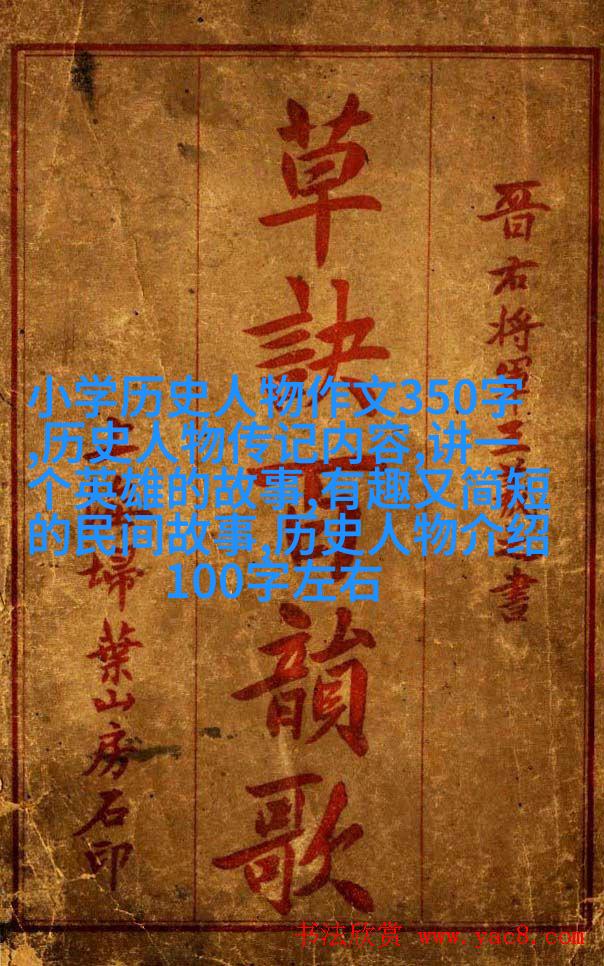 晉右將軍王羲之書
草訣百韻歌
上海掃葉山房石印
小学历史人物作文350字
,历史人物传记内容,讲一
个英雄的故事,有趣又简短
的民间故事,历史人物介绍
100字左右
书法欣赏 www.yac8.com